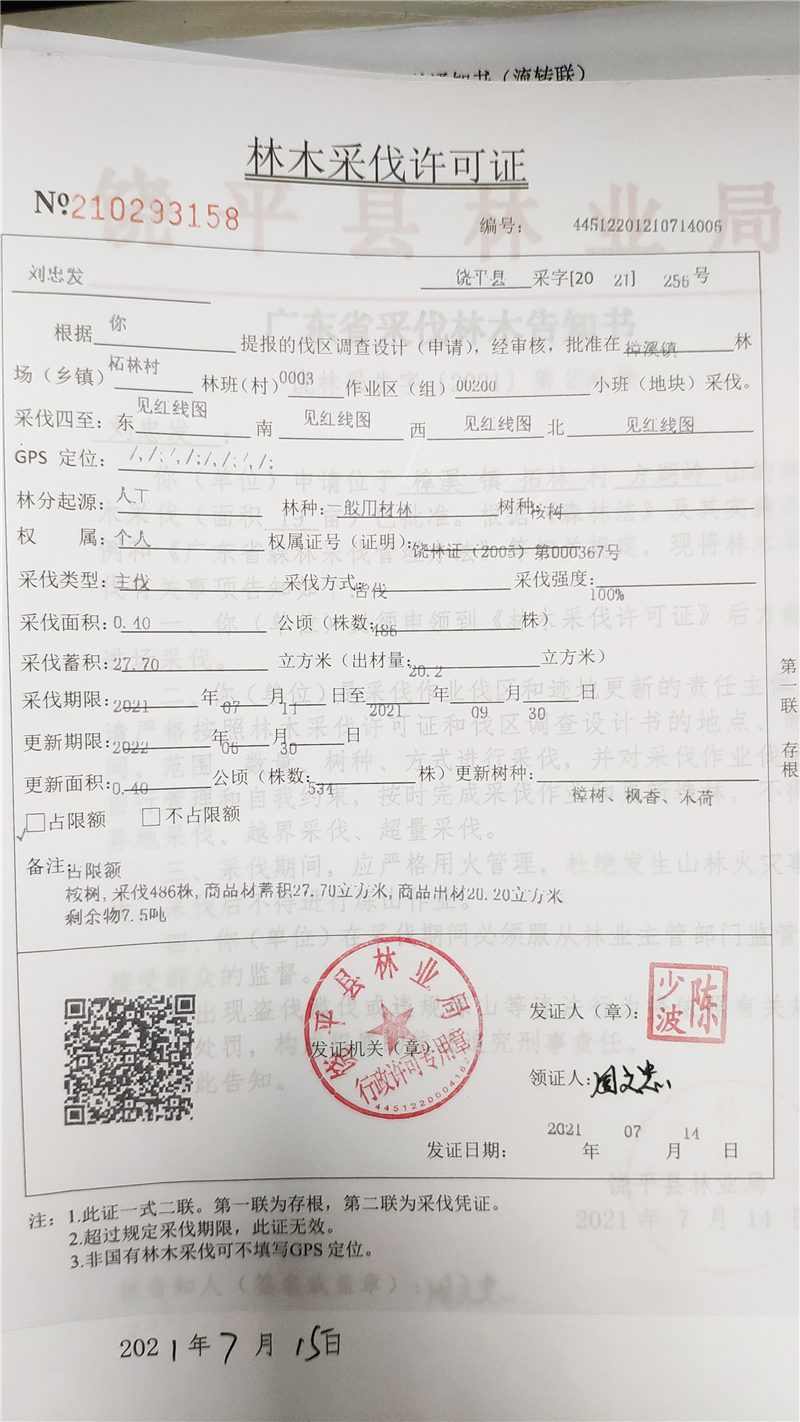 (流转联)
林木采伐许可证
№210293158
编号: 44512201210714006
刘忠发
饶平县 采字[20 21] 256 号
根据 你 提报的伐区调查设计(申请),经审核,批准在 樟溪镇 林
场(乡镇) 柘林村 林班(村) 0003 作业区(组) 00200 小班(地块)采伐。
采伐四至:东 见红线图 南 见红线图 西 见红线图 北 见红线图
GPS 定位: /,/;/,/;/,/;/,/;
林分起源: 人工 林种: 一般用材林 树种: 桉树
权 属: 个人 权属证号(证明): 饶林证(2005)第000367号
采伐类型: 主伐 采伐方式: 皆伐 采伐强度: 100%
采伐面积: 0.40 公顷(株数: 486 株)
采伐蓄积: 27.70 立方米(出材量: 20.2 立方米)
采伐期限: 2021 年 07 月 11 日至 2021 年 09 月 30 日
更新期限: 2022 年 06 月 30 日
更新面积: 0.40 公顷(株数: 534 株)更新树种: 樟树、枫香、木荷
✓□占限额 □不占限额
备注: 占限额
桉树,采伐486株,商品材蓄积27.70立方米,商品出材20.20立方米
剩余物7.5吨
第一联 存根
饶平县林业局
行政许可专用章
4451220004162
发证机关(章)
发证人(章):
陈少波
领证人: 周文忠
发证日期: 2021 年 07 月 14 日
注: 1.此证一式二联。第一联为存根,第二联为采伐凭证。
2.超过规定采伐期限,此证无效。
3.非国有林木采伐可不填写GPS 定位。
2021年7月15日